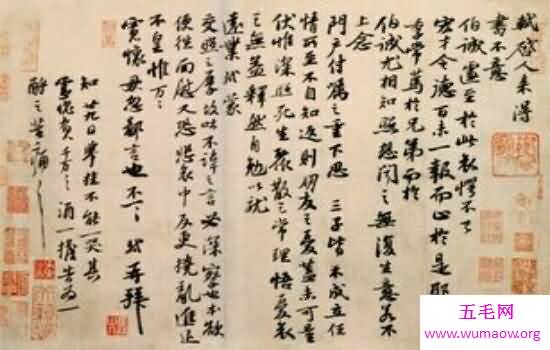 軾啓人來得
書不意
伯誠遽至於此哀愕不已
宏才令德百未一報而止於是耶
季常篤於兄弟而於
伯誠尤相知照想聞之無復生意若不
上念
門戶付囑之重下思三子皆不成立任
情所至不自知返則朋友之憂蓋未可量
伏惟深照死生聚散之常理悟憂哀
之無益釋然自勉以就
遠業軾蒙
交照之厚故吐不諱之言必深察也本欲
便往面慰又恐悲哀中反更撓亂進退
不皇惟万万
寬懷毋忽鄙言也不一一軾再拜
知廿九日舉挂不能一哭其
靈愧負千万千万酒一擔告為一
酹之苦痛苦痛
五毛网
www.wumaow.org